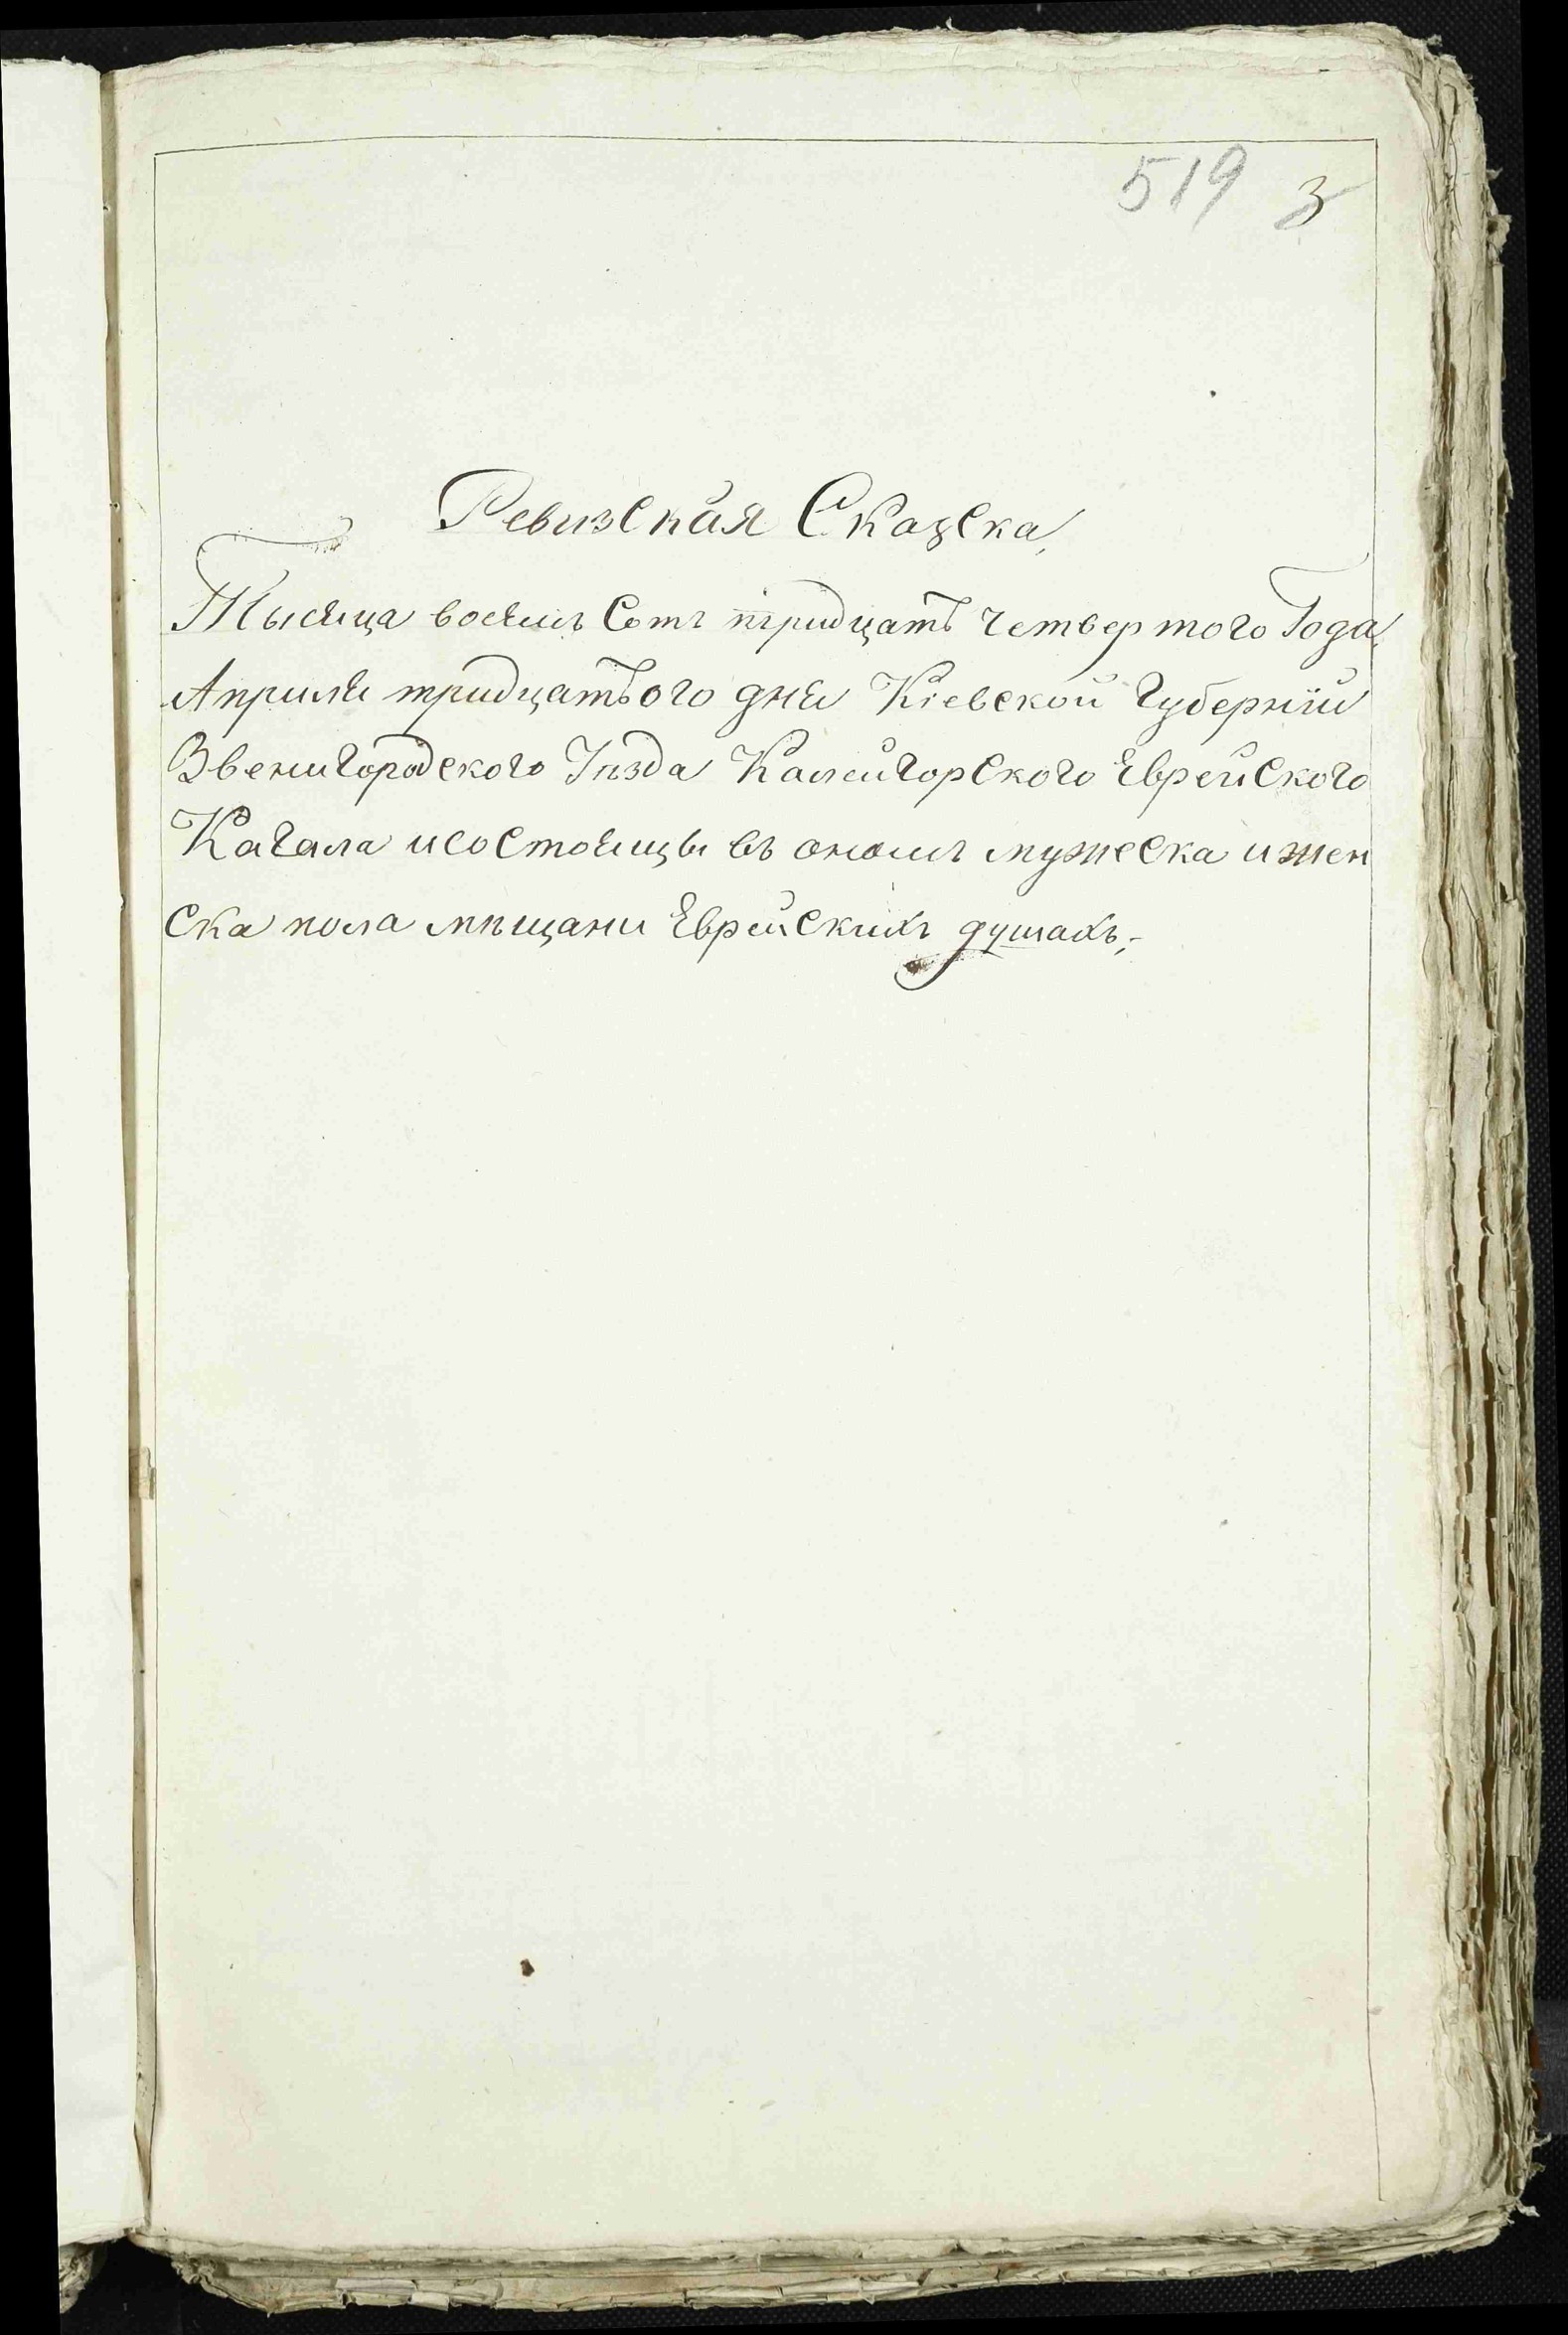 519 3
Ревизская Сказска
Тысяца восемъ Сотъ тридцать четвертого Года,
Априля тридцатього дня Кіевской Губерніи
Звенигородского Уѣзда Калейгорского Еврейского
Кагала исостоящы въ ономъ мужеска ижен
ска пола мѣщани Еврейскихъ душахъ;-